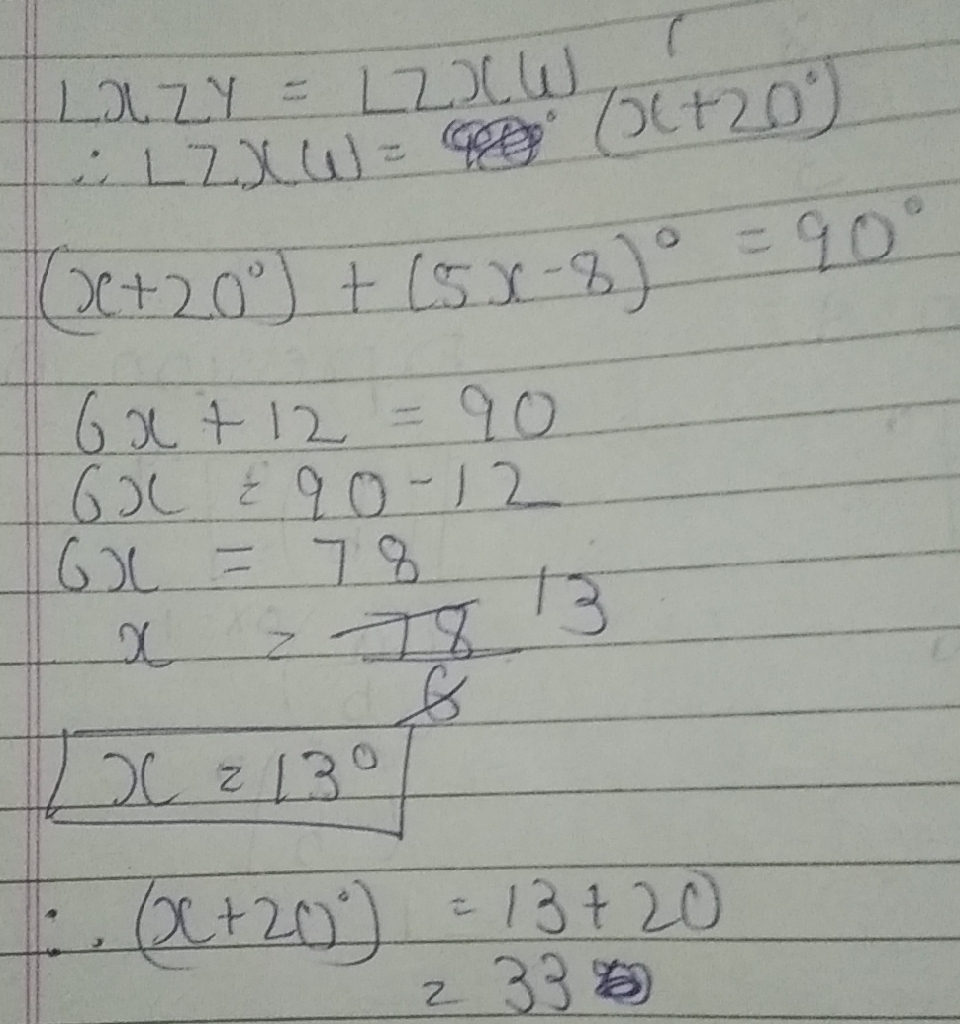 ∟XZY = ∟ZXW
∴ ∟ZXW = (x+20°)
(x+20°) + (5x-8)° = 90°
6x + 12 = 90
6x = 90-12
6x = 78
x = 78/6 13
x = 13°
∴ (x+20°) = 13+20
= 33